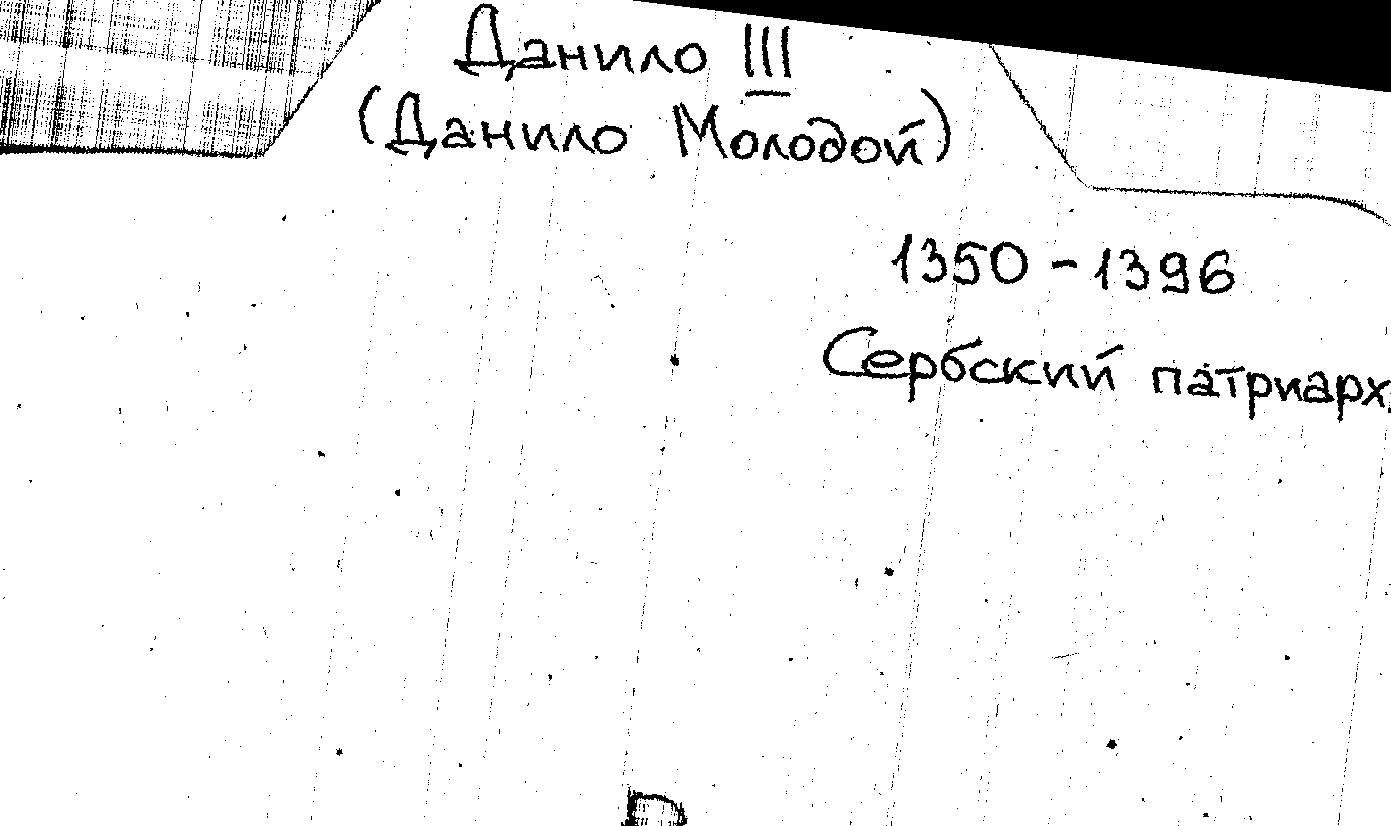 Данило III
(Данило Молодой)
1350 - 1396
Сербский патриарх.